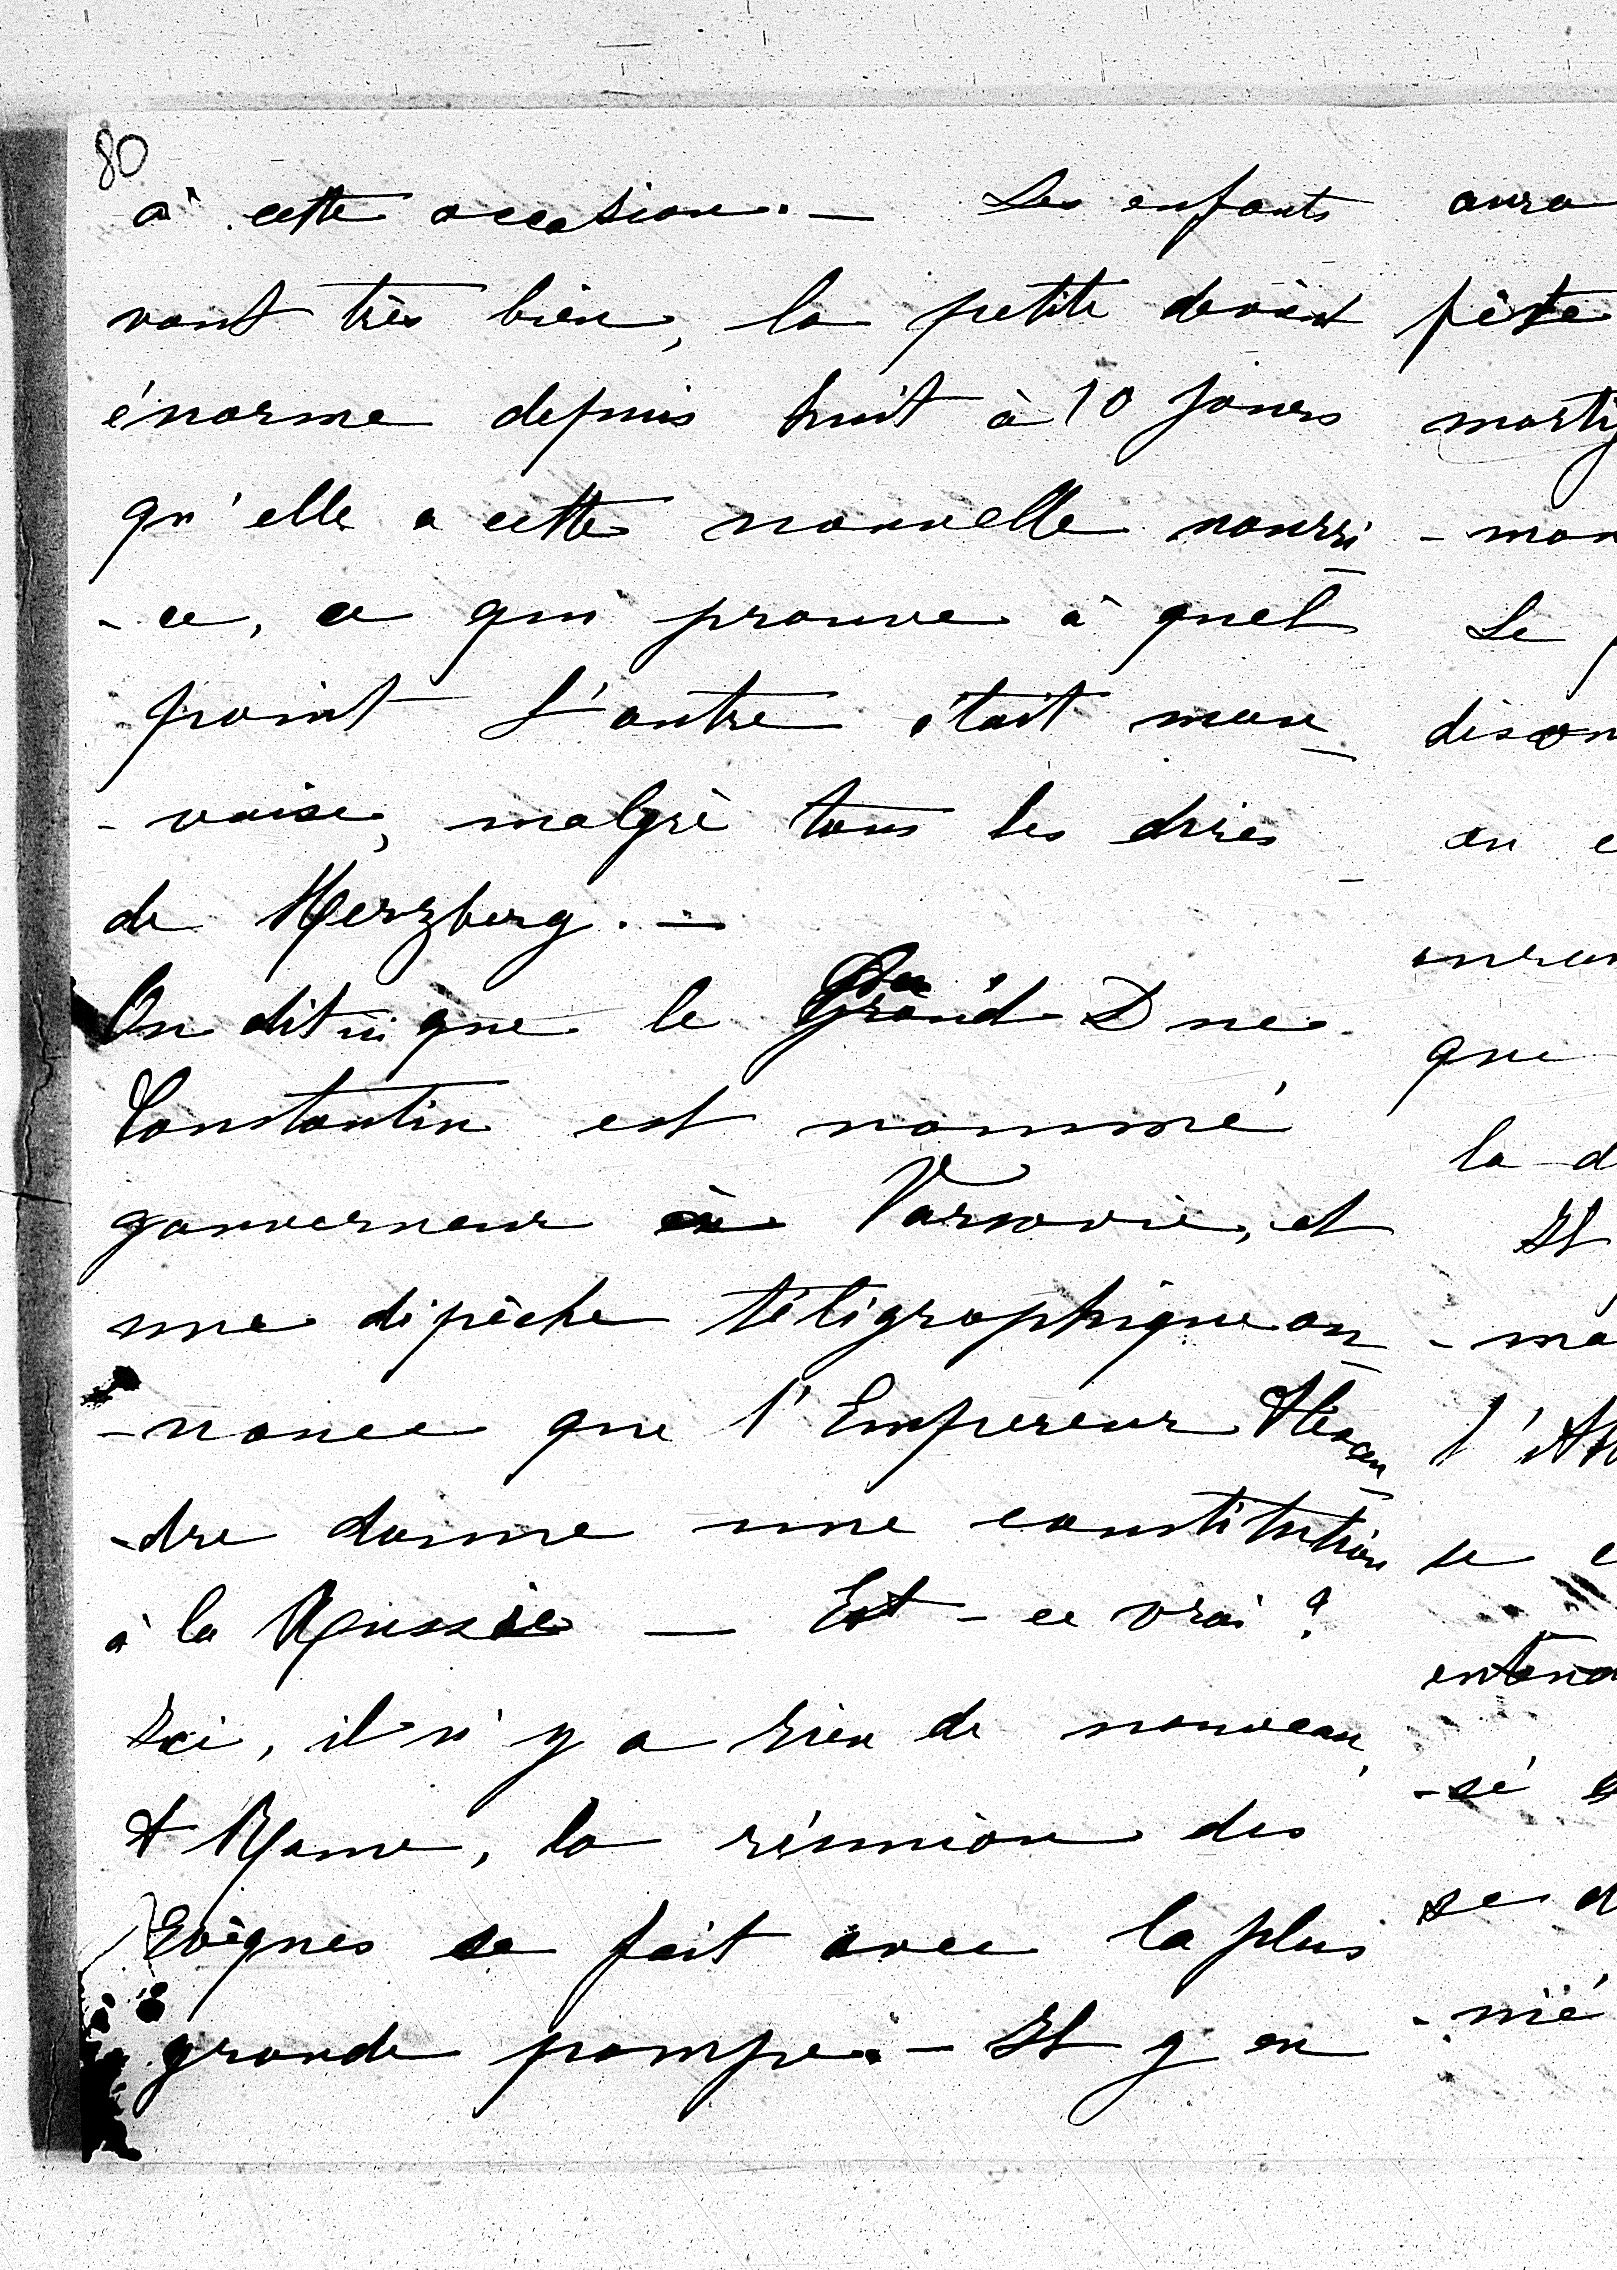 80
à cette occasion. — Les enfants
vont très bien, la petite devient
énorme depuis huit à 10 jours
qu'elle a cette nouvelle nourri
- ce, ce qui prouve à quel
point l'autre était mau
- vaise, malgré tous les dires
de Herzberg. —
On dit ici que le Grand Duc
Constantin est nommé
gouverneur à Varsovie, et
une dépêche télégraphique an
- nonce que l'Empereur Alexan
- dre donne une constitution
à la Russie — Est-ce vrai ?
Ici, il n'y a rien de nouveau,
A Rome, la réunion des
Evêques se fait avec la plus
grande pompe. — Il y en
aura
fête
- mon
Le
on e
que
la d
Il
- ma
se e
- sé
se d
- nié